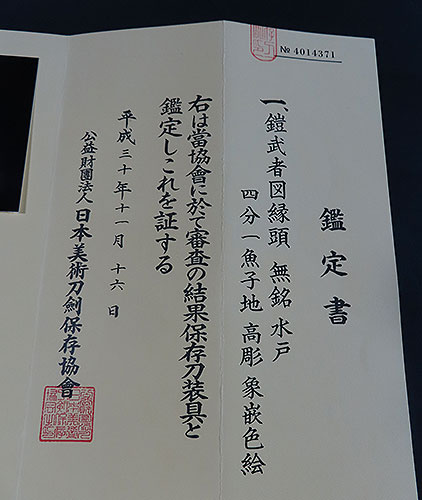 № 4014371
鑑定書
一、鎧武者図縁頭 無銘 水戸
四分一魚子地 高彫 象嵌色絵
右は當協會に於て審査の結果保存刀装具と
鑑定しこれを証する
平成三十年十一月 十六 日
公益財團法人 日本美術刀劍保存協會